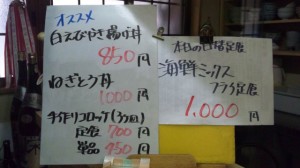 オススメ
白えびかき揚げ丼
850円
ねぎとろ丼
1000円
手作りコロッケ(3ヶ)
定食 700円
単品 450円
本日の日替定食
海鮮ミックス
フライ定食
1,000円